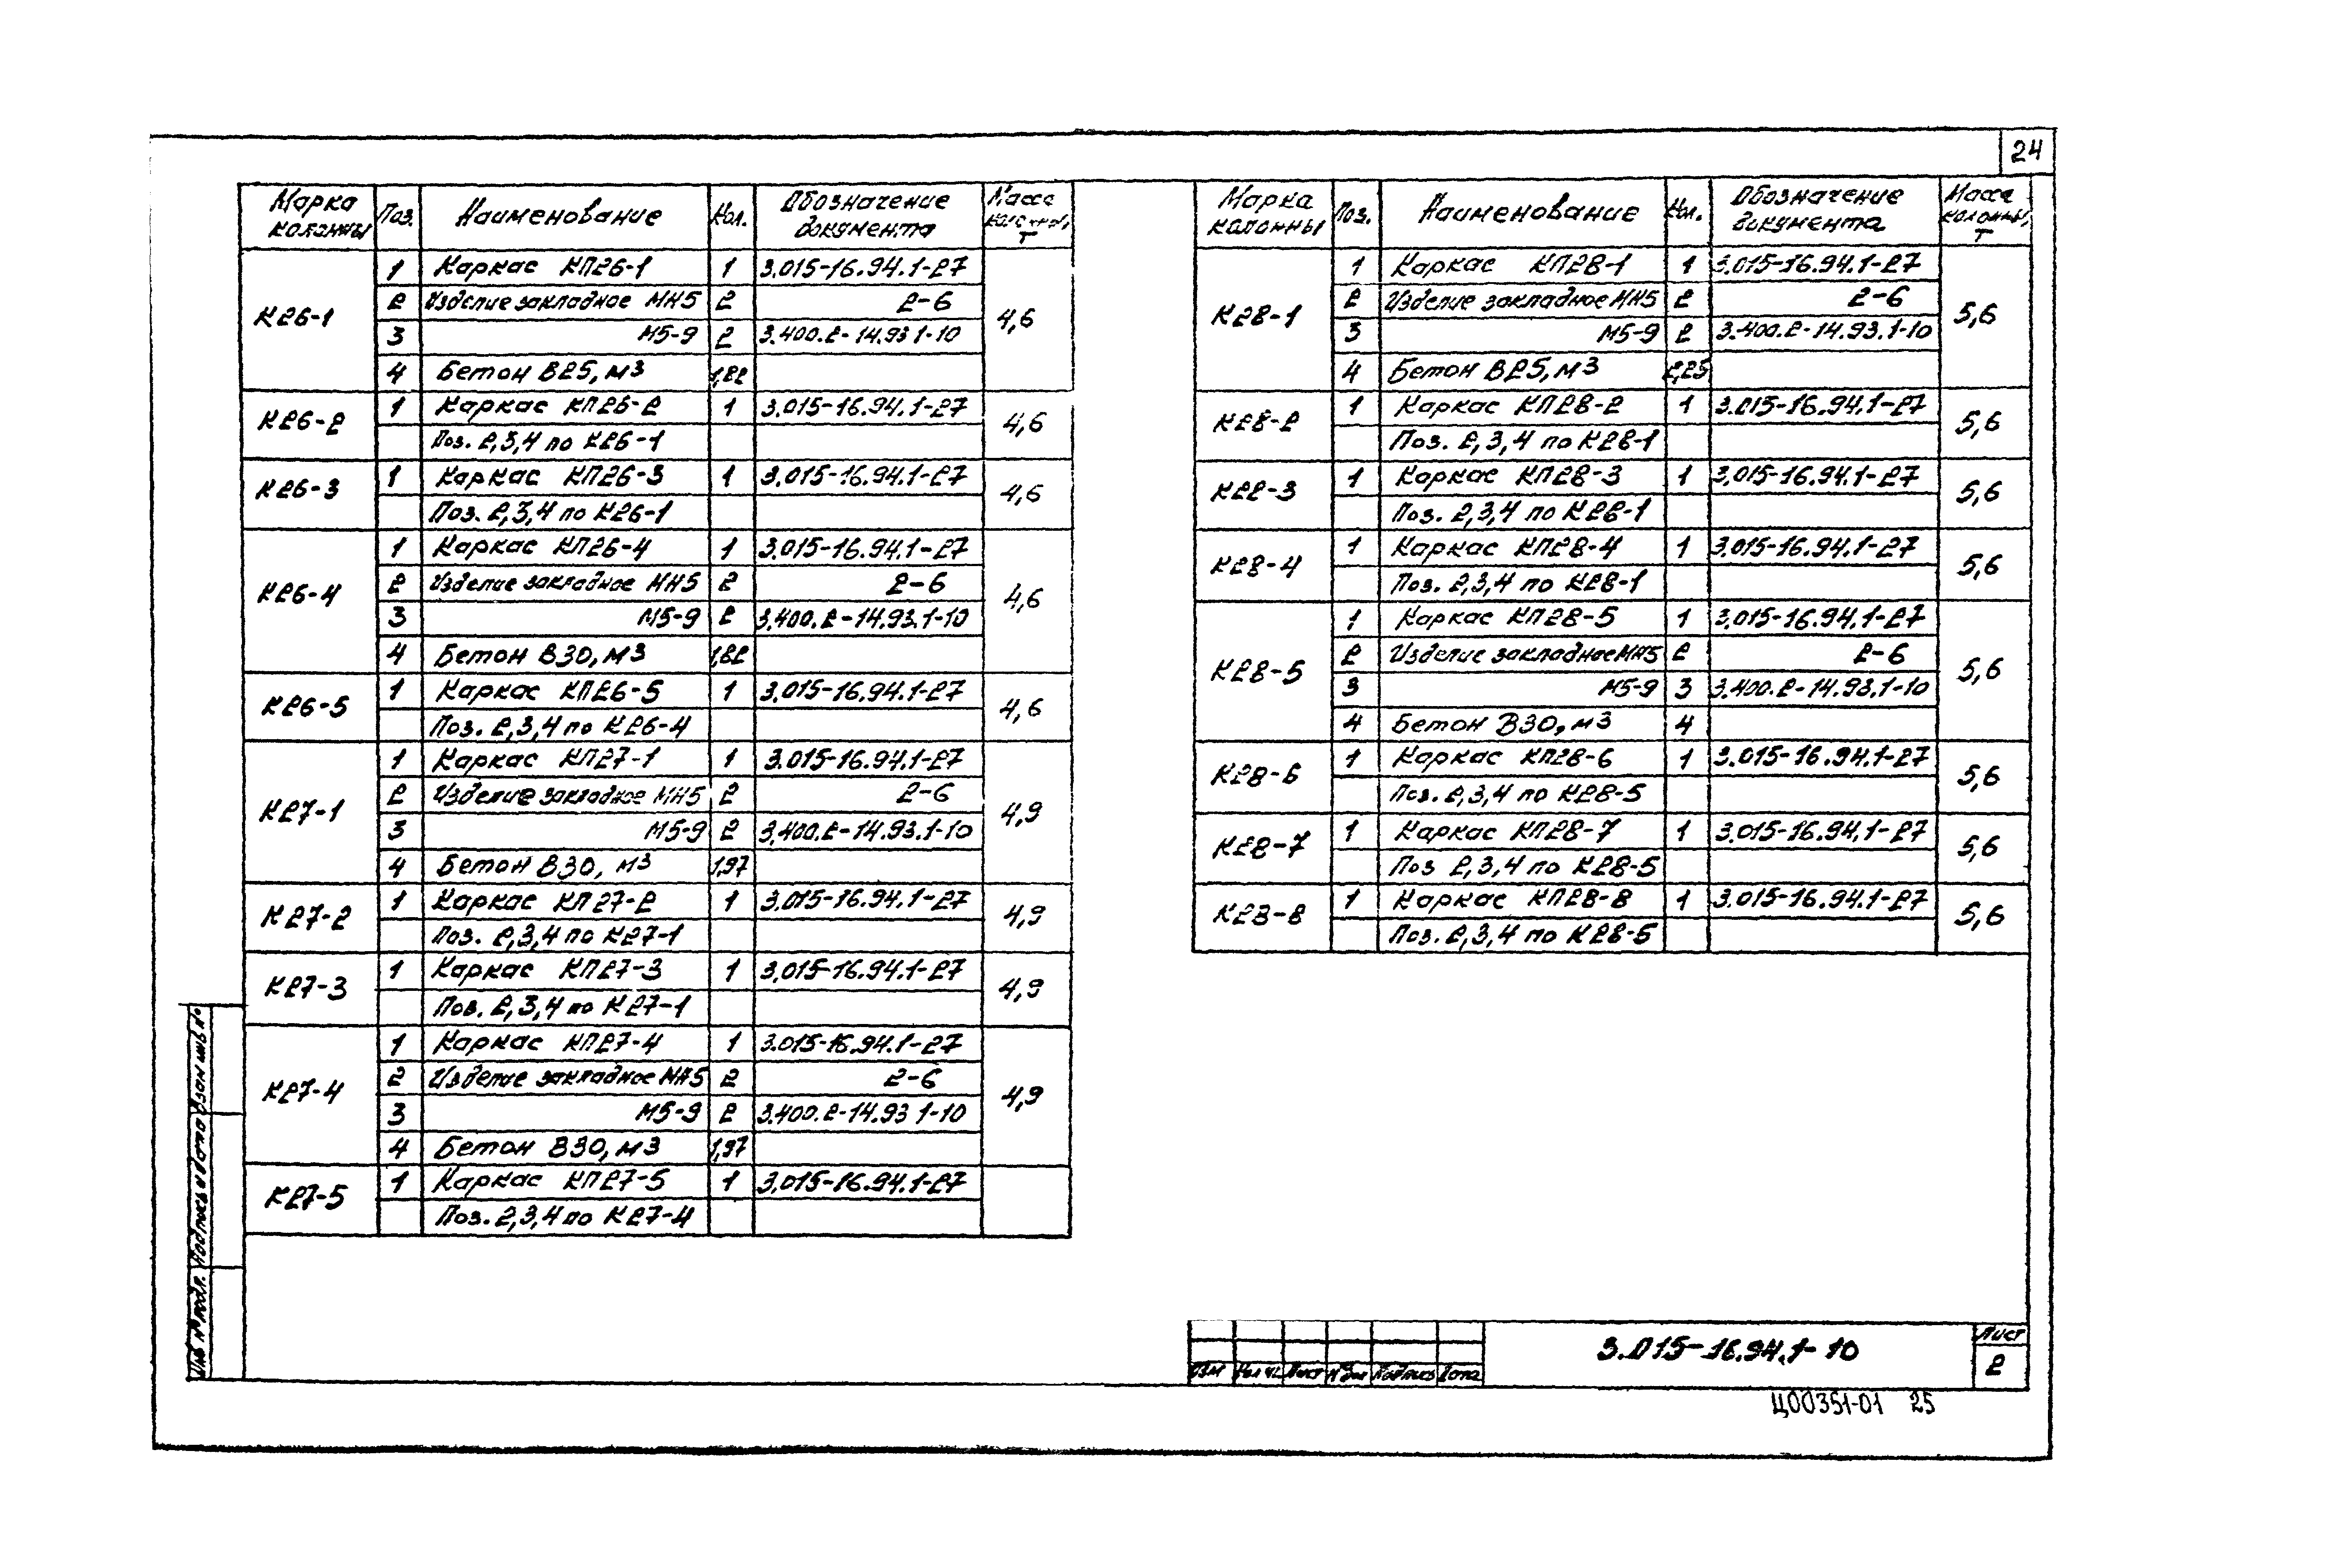 24
Марка колонны Поз. Наименование Кол. Обозначение документа Масса колонны, т
К26-1 1 Каркас КП26-1 1 3.015-16.94.1-27 4,6
2 Изделие закладное МН5 2 2-6
3 М5-9 2 3.400.2-14.93 1-10
4 Бетон В25, м3 1,82
К26-2 1 Каркас КП26-2 1 3.015-16.94.1-27 4,6
Поз. 2,3,4 по К26-1
К26-3 1 Каркас КП26-3 1 3.015-16.94.1-27 4,6
Поз. 2,3,4 по К26-1
К26-4 1 Каркас КП26-4 1 3.015-16.94.1-27 4,6
2 Изделие закладное МН5 2 2-6
3 М5-9 2 3.400.2-14.93.1-10
4 Бетон В30, м3 1,82
К26-5 1 Каркас КП26-5 1 3.015-16.94.1-27 4,6
Поз. 2,3,4 по К26-4
К27-1 1 Каркас КП27-1 1 3.015-16.94.1-27 4,9
2 Изделие закладное МН5 2 2-6
3 М5-9 2 3.400.2-14.93.1-10
4 Бетон В30, м3 1,97
К27-2 1 Каркас КП27-2 1 3.015-16.94.1-27 4,9
Поз. 2,3,4 по К27-1
К27-3 1 Каркас КП27-3 1 3.015-16.94.1-27 4,9
Поз. 2,3,4 по К27-1
К27-4 1 Каркас КП27-4 1 3.015-16.94.1-27 4,9
2 Изделие закладное МН5 2 2-6
3 М5-9 2 3.400.2-14.93 1-10
4 Бетон В30, м3 1,97
К27-5 1 Каркас КП27-5 1 3.015-16.94.1-27
Поз. 2,3,4 по К27-4
Марка колонны Поз. Наименование Кол. Обозначение документа Масса колонны, т
К28-1 1 Каркас КП28-1 1 3.015-16.94.1-27 5,6
2 Изделие закладное МН5 2 2-6
3 М5-9 2 3.400.2-14.93.1-10
4 Бетон В25, м3 2,25
К28-2 1 Каркас КП28-2 1 3.015-16.94.1-27 5,6
Поз. 2,3,4 по К28-1
К28-3 1 Каркас КП28-3 1 3.015-16.94.1-27 5,6
Поз. 2,3,4 по К28-1
К28-4 1 Каркас КП28-4 1 3.015-16.94.1-27 5,6
Поз. 2,3,4 по К28-1
К28-5 1 Каркас КП28-5 1 3.015-16.94.1-27 5,6
2 Изделие закладное МН5 2 2-6
3 М5-9 3 3.400.2-14.93.1-10
4 Бетон В30, м3 4
К28-6 1 Каркас КП28-6 1 3.015-16.94.1-27 5,6
Поз. 2,3,4 по К28-5
К28-7 1 Каркас КП28-7 1 3.015-16.94.1-27 5,6
Поз 2,3,4 по К28-5
К28-8 1 Каркас КП28-8 1 3.015-16.94.1-27 5,6
Поз. 2,3,4 по К28-5
Инв № подл. Подпись и дата Взам инв №
Изм Кол уч Лист № док Подпись Дата
3.015-16.94.1-10
Лист
2
Ц00351-01 25